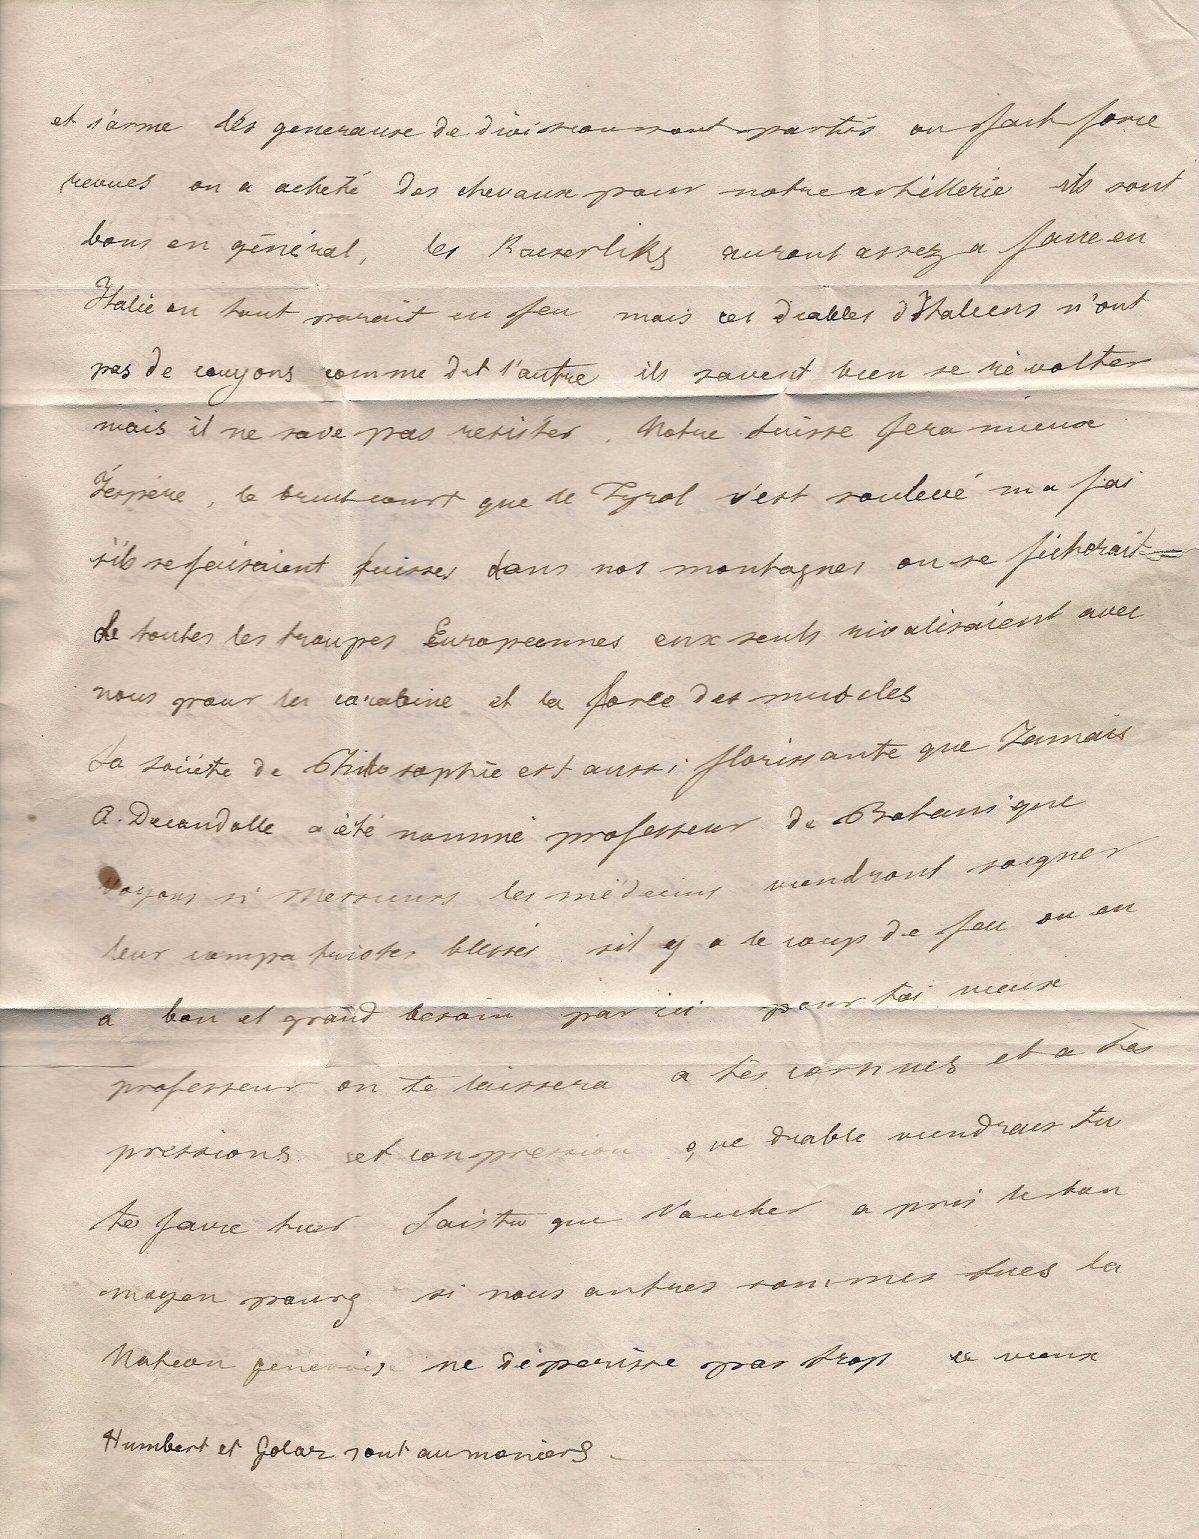 et s'arme des generaux de division sont partis on fait force
revues on a acheté des chevaux pour notre artillerie ils sont
bons en général, les Kaeserliks auront assez a faire en
Italie ou tout parait en feu mais ces diables d'Italiens n'ont
pas de couyons comme dit l'autre ils savent bien se révolter
mais il ne save pas resister. Notre Suisse fera mieux
J'espère, le bruit court que le Tyrol s'est soulevé ma foi
s'ils se faisaient suisses dans nos montagnes on se ficherait
de toutes les troupes Européennes eux seuls rivalisaient avec
nous pour la carabine et la force des muscles
La société de Philosophie est aussi florissante que Jamais
A. Decandolle a été nommé professeur de Botanique
Voyons si Messieurs les médecins viendront soigner
leur compatriotes blessés s'il y a le coup de feu on en
a bon et grand besoin par ici pour toi vieux
professeur on te laissera a tes cornues et a tes
pressions et compression que diable viendrais tu
te faire tuer Sais tu que Vaucher a pris le bon
moyen pourq si nous autres sommes tues la
Nation genevoise ne déperisse pas trop ce vieux
Humbert et Golaz sont aumoniers